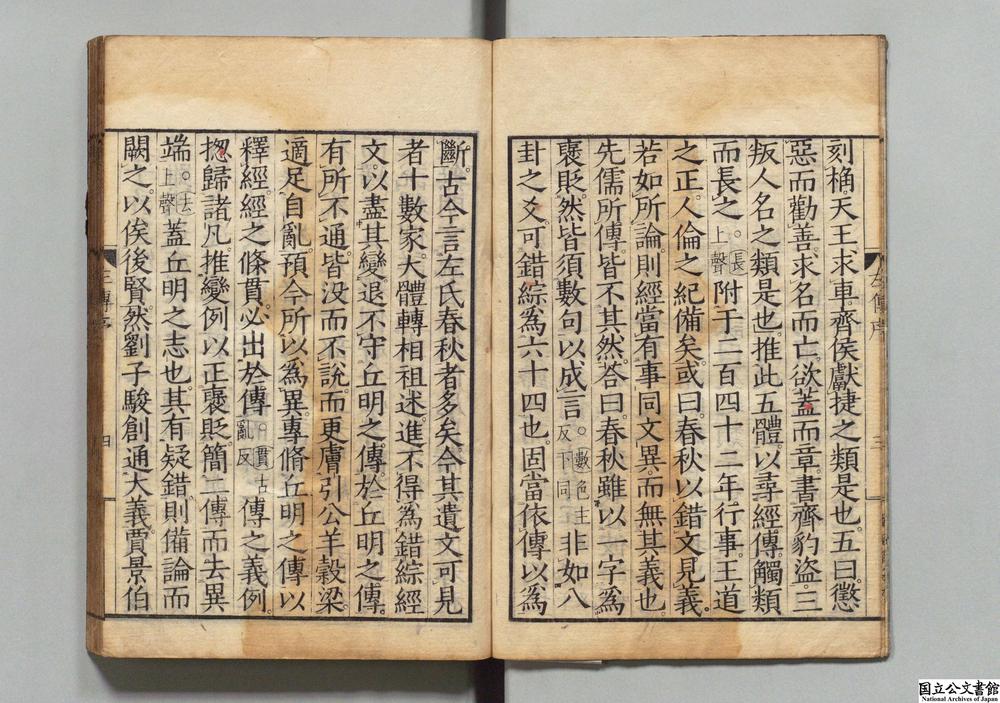 刻桷。天王求車。齊侯獻捷之類是也。五曰懲
惡而勸善。求名而亡。欲蓋而章。書齊豹盜。三
叛人名之類是也。推此五體。以尋經傳。觸類
而長之。長上聲附于二百四十二年行事。王道
之正。人倫之紀備矣。或曰。春秋以錯文見義。
若如所論。則經當有事同文異。而無其義也。
先儒所傳。皆不其然。答曰。春秋雖以一字為
襃貶。然皆須數句以成言。數色主反下同非如八
卦之爻。可錯綜為六十四也。固當依傳以為
斷。古今言左氏春秋者多矣。今其遺文可見
者十數家。大體轉相祖述。進不得為錯綜經
文。以盡其變。退不守丘明之傳。於丘明之傳。
有所不通。皆没而不說。而更膚引公羊穀梁。
適足自亂。預今所以為異。專脩丘明之傳以
釋經。經之條貫。必出於傳。貫古亂反傳之義例。
揔歸諸凡。推變例以正襃貶。簡二傳而去異
端。去上聲蓋丘明之志也。其有疑錯。則備論而
闕之。以俟後賢。然劉子駿創通大義。賈景伯
左傳序
三
左傳序
四
国立公文書館
National Archives of Japan